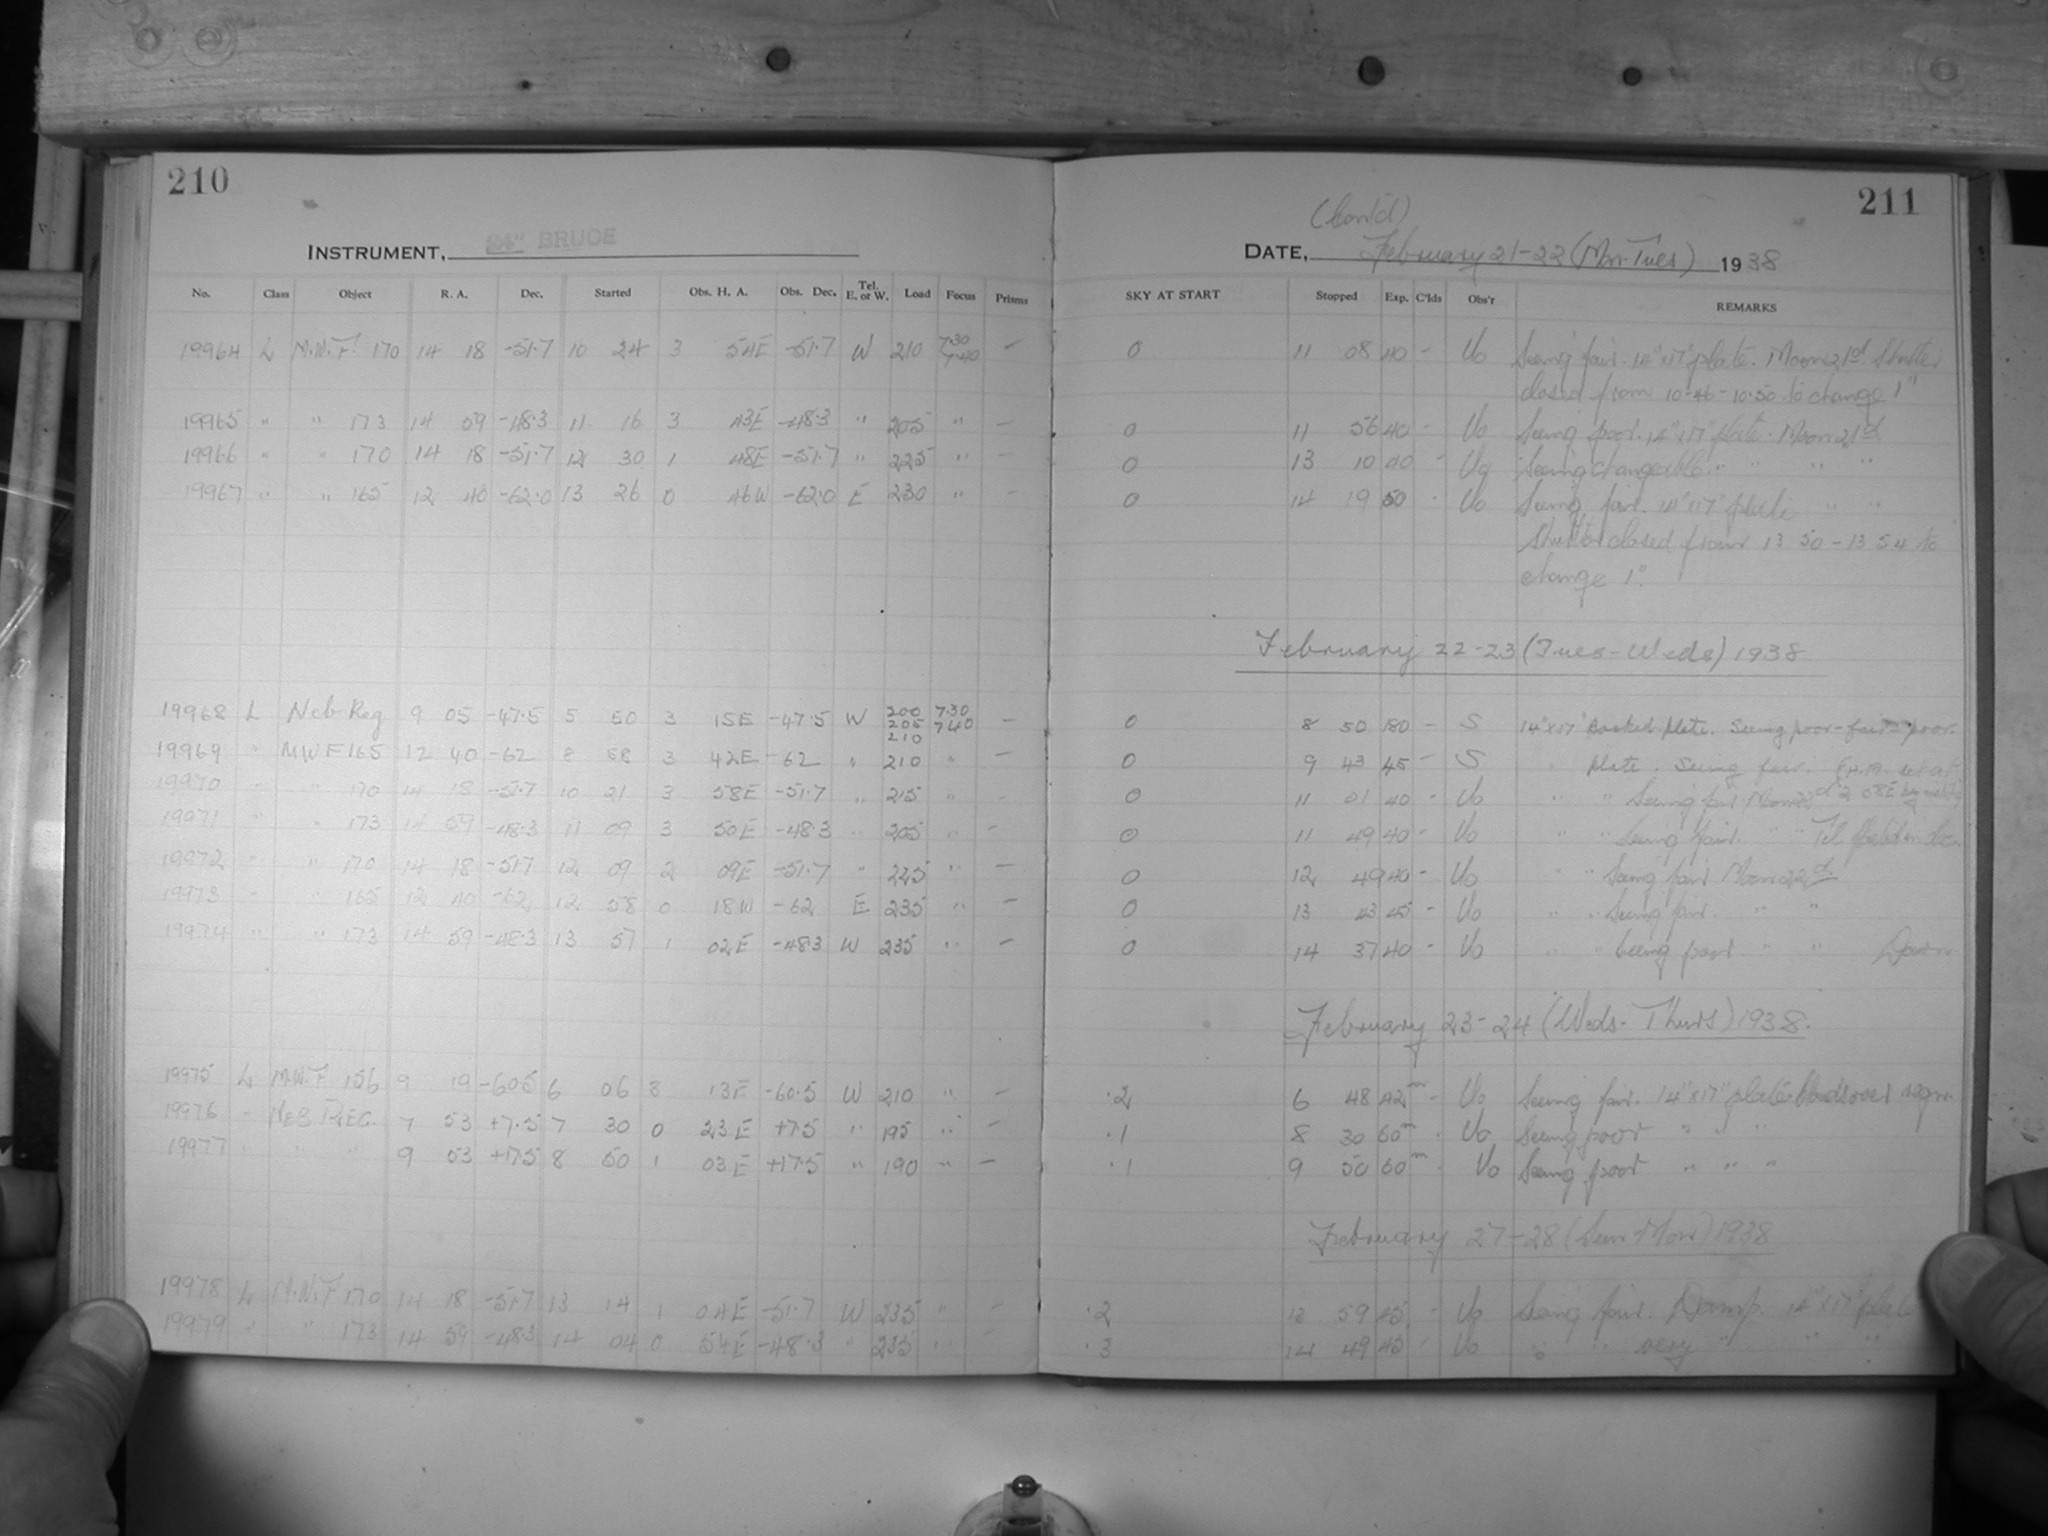 210
INSTRUMENT, 24" BRUCE
No. Class Object R. A. Dec. Started Obs. H. A. Obs. Dec. Tel. E. or W. Load Focus Prisms
19964 L M.W.F. 170 14 18 -51.7 10 24 3 54E -51.7 W 210 7.30 7.40 -
19965 " " 173 14 59 -48.3 11 16 3 43E -48.3 " 205 " -
19966 " " 170 14 18 -51.7 12 30 1 48E -51.7 " 225 " -
19967 " " 165 12 40 -62.0 13 26 0 46W -62.0 E 230 " -
19968 L Neb. Reg 9 05 -47.5 5 50 3 15E -47.5 W 200 205 210 7.30 7.40 -
19969 " MWF165 12 40 -62 8 58 3 42E -62 " 210 " -
19970 " " 170 14 18 -51.7 10 21 3 58E -51.7 " 215 " -
19971 " " 173 14 59 -48.3 11 09 3 50E -48.3 " 205 " -
19972 " " 170 14 18 -51.7 12 09 2 09E -51.7 " 225 " -
19973 " " 165 12 40 -62 12 58 0 18W -62 E 235 " -
19974 " " 173 14 59 -48.3 13 57 1 02E -48.3 W 235 " -
19975 L M.W.F 156 9 19 -60.5 6 06 3 13E -60.5 W 210 " -
19976 " NEB REG. 7 53 +7.5 7 30 0 23E +7.5 " 195 " -
19977 " " " 9 53 +17.5 8 50 1 03E +17.5 " 190 " -
19978 L M.W.F 170 14 18 -51.7 13 14 1 04E -51.7 W 235 " -
19979 " " 173 14 59 -48.3 14 04 0 54E -48.3 " 235 " -
211
(Contd)
DATE, February 21-22 (Mon-Tues) 1938
SKY AT START Stopped Exp. C'lds Obs'r REMARKS
0 11 08 40 - Vo Seeing fair. 14"x17" plate. Moon 21d Shutter
closed from 10-46-10.50 to change 1"
0 11 56 40 - Vo Seeing poor. 14"x17" plate. Moon 21d
0 13 10 40 - Vo Seeing changeable. " " " "
0 14 19 50 - Vo Seeing fair. 14"x17" plate " "
Shutter closed from 13 50-13 54 to
change 1".
February 22-23 (Tues-Weds) 1938
0 8 50 180 - S 14"x17" Backed plate. Seeing poor-fair-poor.
0 9 43 45 - S " plate. Seeing fair.
0 11 01 40 - Vo " " Seeing fair Moon 22d
0 11 49 40 - Vo " Seeing fair. " " Tel in dec.
0 12 49 40 - Vo " " Seeing fair Moon 22d
0 13 43 45 - Vo " " Seeing fair. " "
0 14 37 40 - Vo " " Seeing poor " " Dawn.
February 23-24 (Weds-Thurs) 1938.
.2 6 48 42m - Vo Seeing fair. 14"x17" plate. Clouds over region.
.1 8 30 60m - Vo Seeing poor " " "
.1 9 50 60m - Vo Seeing poor " " "
February 27-28 (Sun-Mon) 1938
.2 13 59 45 - Vo Seeing fair. Damp. 14"x17" plate
.3 14 49 45 - Vo " " very " " "